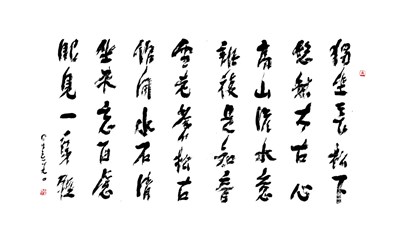 獨坐長松下
悠然太古心
高山流水意
誰復是知音
雪老蒼松古
溪
水石清
坐來忘百慮
眼見一身輕